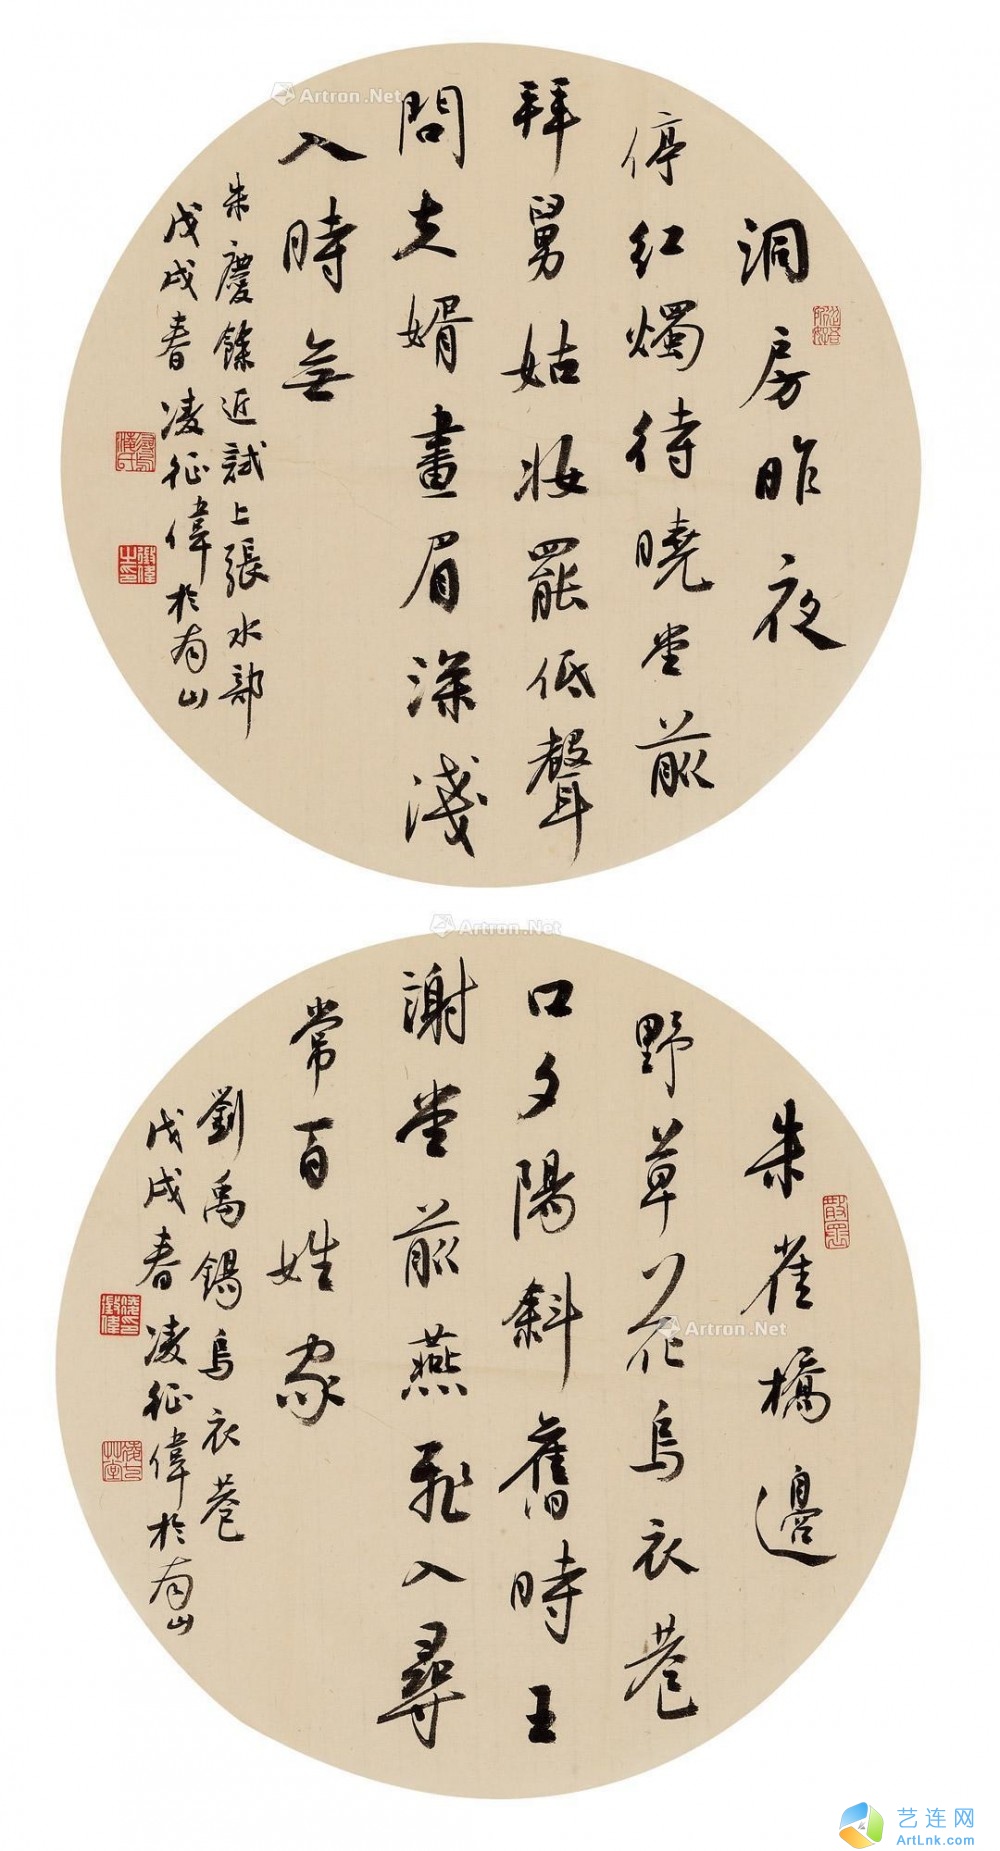 洞房昨夜
停紅燭待曉堂前
拜舅姑妝罷低聲
問夫婿畫眉深淺
入時無
朱慶餘近試上張水部
戊戌春凌征偉於南山
Artron.Net
朱雀橋邊
野草花烏衣巷
口夕陽斜舊時王
謝堂前燕飛入尋
常百姓家
劉禹錫烏衣巷
戊戌春凌征偉於南山
Artron.Net
Artron.Net
艺连网
ArtLnk.com